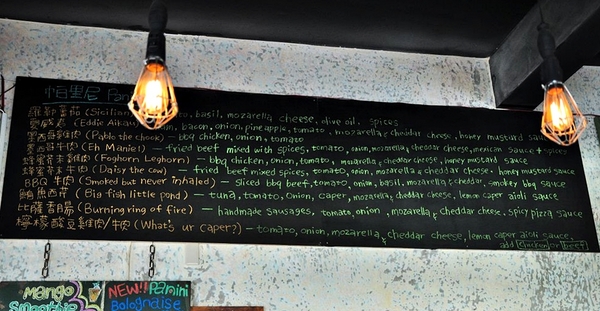 帕里尼 Pan
羅勒蕃茄 (Sicilian , basil, mozarella cheese, olive oil, spices
夏威夷 (Eddie Aikau) , bacon, onion, pineapple, tomato, mozarella & cheddar cheese, honey mustard sauce
墨西哥雞肉 (Pablo the chook) - bbq chicken, onion, tomato
墨西哥牛肉 (Eh Manie!) - fried beef mixed with spices, tomato, onion, mozarella & cheddar cheese, mexican sauce + spices
蜂蜜芥末雞肉 (Foghorn Leghorn) - bbq chicken, onion, tomato, mozarella & cheddar cheese, honey mustard sauce
蜂蜜芥末牛肉 (Daisy the cow) - fried beef mixed spices, tomato, onion, mozarella & cheddar cheese, honey mustard sauce
BBQ 牛肉 (Smoked but never inhaled) - sliced bbq beef, tomato, onion, basil, mozarella & cheddar, smokey bbq sauce
鮪魚西芹 (Big fish little pond) - tuna, tomato, onion, caper, mozarella & cheddar cheese, lemon caper aioli sauce
比薩香腸 (Burning ring of fire) - handmade sausages, tomato, onion, mozarella & cheddar cheese, spicy pizza sauce
檸檬酸豆雞肉/牛肉 (What's ur caper?) - tomato, onion, mozarella & cheddar cheese, lemon caper aioli sauce,
add chicken or beef
mango
Smoothie
NEW!! Panini
Bolognaise